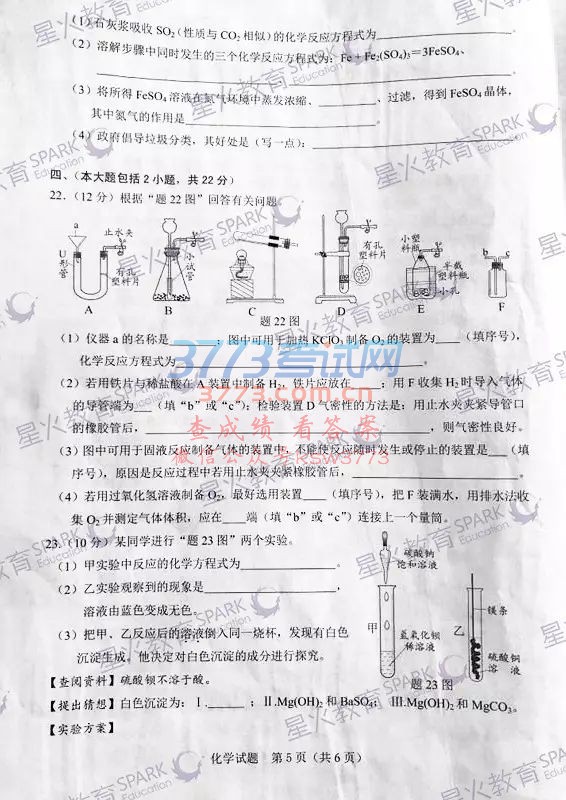 (1) 石灰浆吸收 SO₂ (性质与 CO₂ 相似) 的化学反应方程式为____________
(2) 溶解步骤中同时发生的三个化学反应方程式为: Fe + Fe₂(SO₄)₃＝3FeSO₄、
____________。
(3) 将所得 FeSO₄ 溶液在氮气环境中蒸发浓缩、________、过滤，得到 FeSO₄ 晶体，
其中氮气的作用是____________
(4) 政府倡导垃圾分类，其好处是（写一点）：____________
四、（本大题包括 2 小题，共 22 分）
22.（12 分）根据“题 22 图”回答有关问题
a
止水夹
U形管
有孔塑料片
小试管
有孔塑料片
小塑料瓶
半截塑料瓶
小孔
b c
A B C D E F
题 22 图
(1) 仪器 a 的名称是______；图中可用于加热 KClO₃ 制备 O₂ 的装置为____（填序号），
化学反应方程式为____________。
(2) 若用铁片与稀盐酸在 A 装置中制备 H₂，铁片应放在______；用 F 收集 H₂ 时导入气体
的导管端为___（填“b”或“c”）；检验装置 D 气密性的方法是：用止水夹夹紧导管口
的橡胶管后，____________，则气密性良好。
(3) 图中可用于固液反应制备气体的装置中，不能使反应随时发生或停止的装置是___（填
序号），原因是反应过程中若用止水夹夹紧橡胶管后，____________
(4) 若用过氧化氢溶液制备 O₂，最好选用装置____（填序号），把 F 装满水，用排水法收
集 O₂ 并测定气体体积，应在____端（填“b”或“c”）连接上一个量筒。
23.（10 分）某同学进行“题 23 图”两个实验。
(1) 甲实验中反应的化学方程式为____________。
(2) 乙实验观察到的现象是____________，
溶液由蓝色变成无色。
(3) 把甲、乙反应后的溶液倒入同一烧杯，发现有白色
沉淀生成，他决定对白色沉淀的成分进行探究。
硫酸钠饱和溶液
甲
氢氧化钡稀溶液
乙
镁条
硫酸铜溶液
题 23 图
【查阅资料】硫酸钡不溶于酸。
【提出猜想】白色沉淀为：Ⅰ.______；Ⅱ.Mg(OH)₂ 和 BaSO₄；Ⅲ.Mg(OH)₂ 和 MgCO₃。
【实验方案】
化学试题 第 5 页（共 6 页）
星火教育 SPARK Education
3773考试网
www.3773.com.cn
查成绩 看答案
微信公众号KSW3773